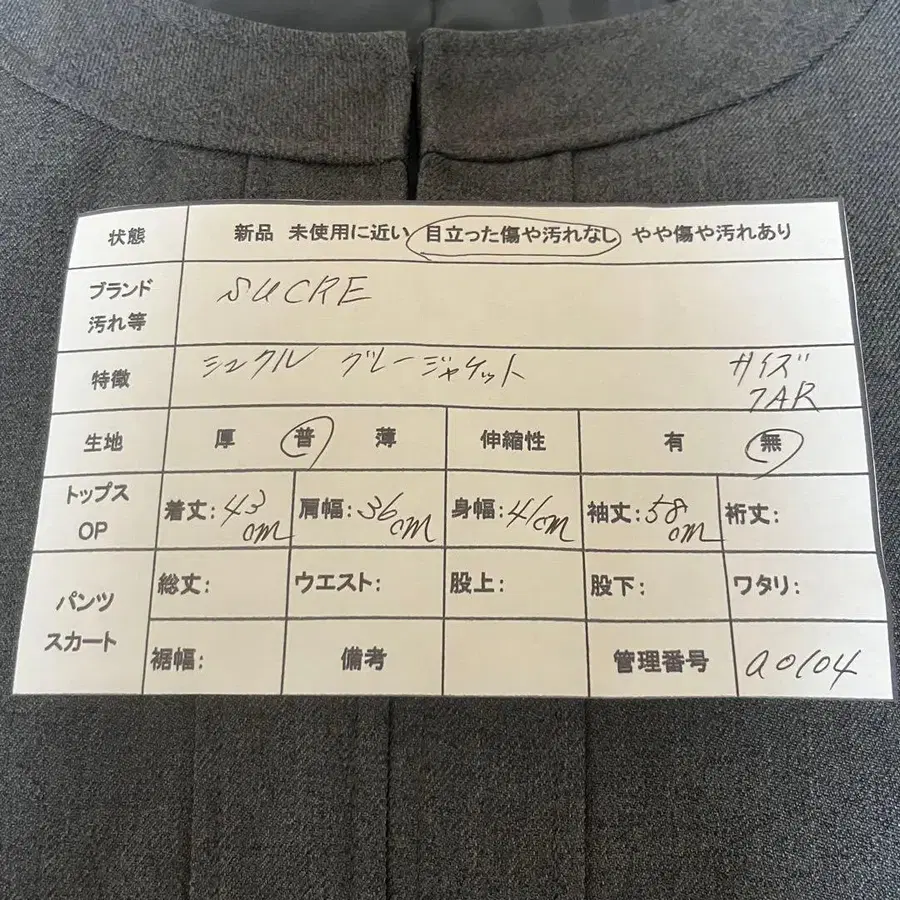 状態 新品 未使用に近い 目立った傷や汚れなし やや傷や汚れあり
ブランド
汚れ等
SUCRE
特徴 シュクル グレージャケット サイズ
7AR
生地 厚 普 薄 伸縮性 有 無
トップス
OP
着丈: 43cm 肩幅: 36cm 身幅: 41cm 袖丈: 58cm 裄丈:
パンツ
スカート
総丈: ウエスト: 股上: 股下: ワタリ:
裾幅: 備考 管理番号 a0104